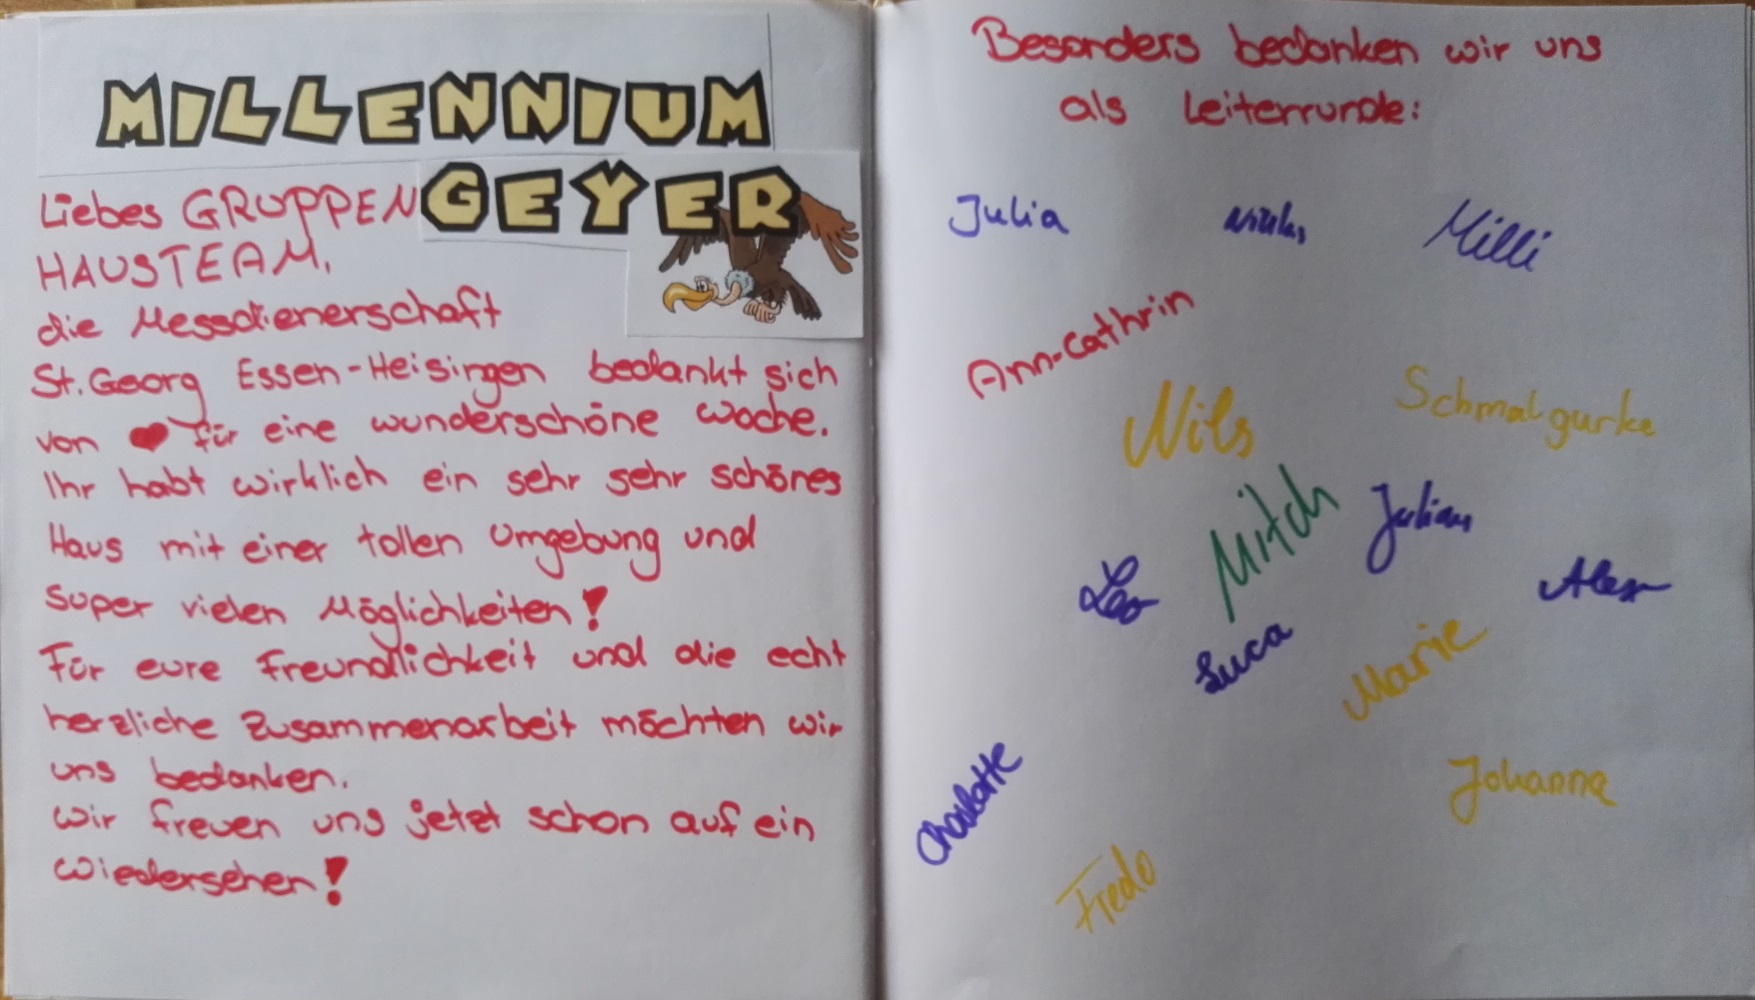 MILLENNIUM
GEYER
Liebes GRUPPEN
HAUSTEAM,
die Messdienerschaft
St. Georg Essen-Heisingen bedankt sich
von ❤ für eine wunderschöne Woche.
Ihr habt wirklich ein sehr sehr schönes
Haus mit einer tollen Umgebung und
super vielen Möglichkeiten!
Für eure Freundlichkeit und die echt
herzliche Zusammenarbeit möchten wir
uns bedanken.
Wir freuen uns jetzt schon auf ein
Wiedersehen!
Besonders bedanken wir uns
als Leiterrunde:
Julia Milli
Ann-Cathrin
Nils Schmalgurke
Mitch Julian
Leo Alex
Luca Marie
Charlotte Johanna
Fredo